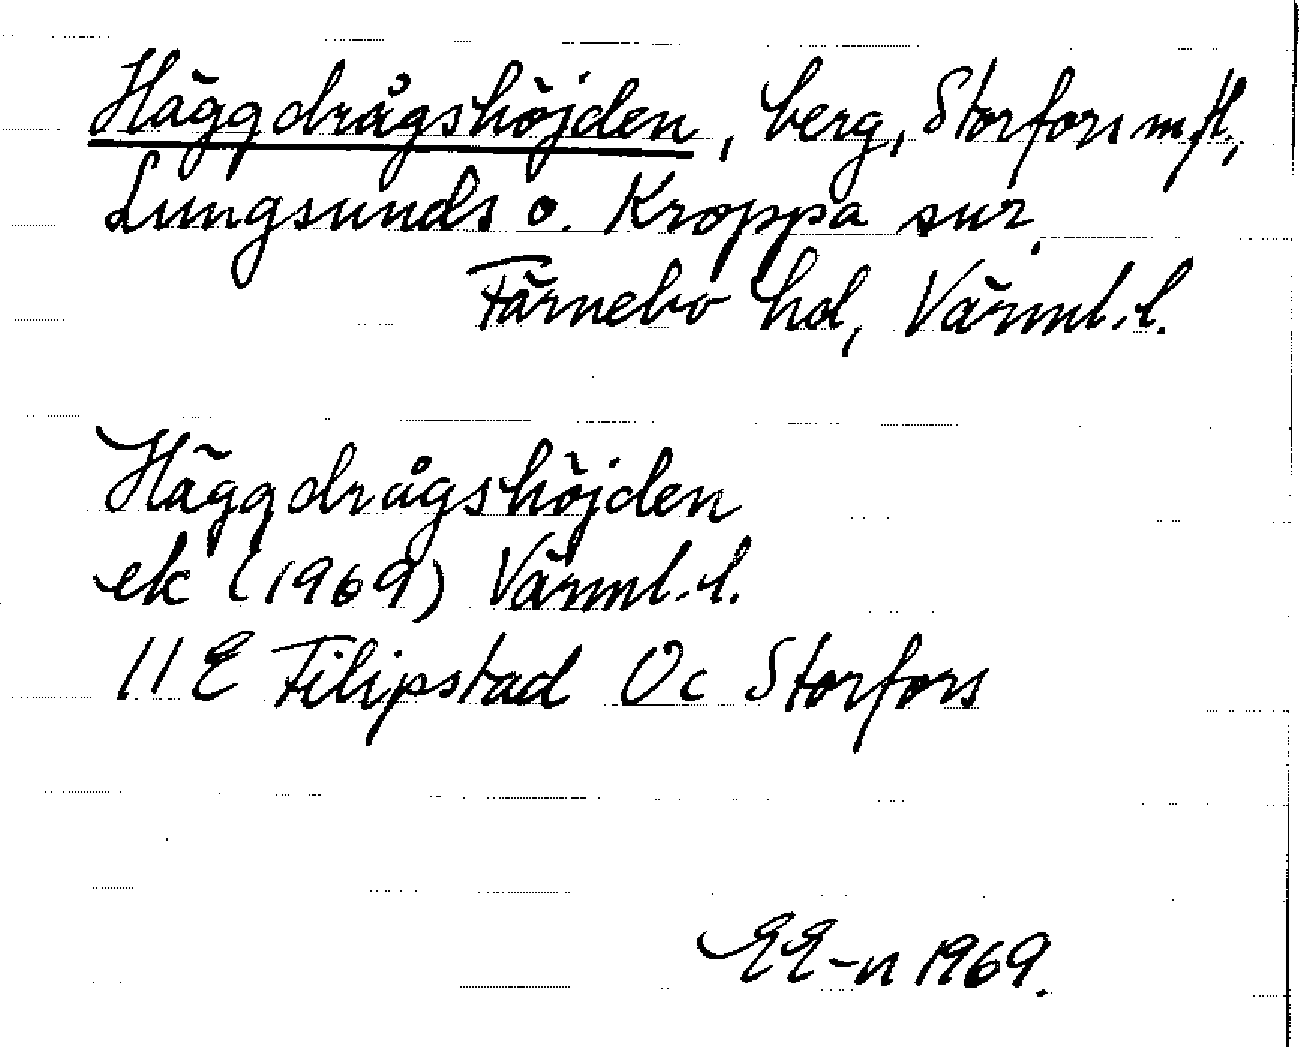 Häggdrågshöjden, berg, Storfors m fl,
Lungsunds o. Kroppa snr,
Färnebo hd, Värml. l.
Häggdrågshöjden
ek (1969) Värml. l.
11 E Filipstad 0c Storfors
EE-n 1969.